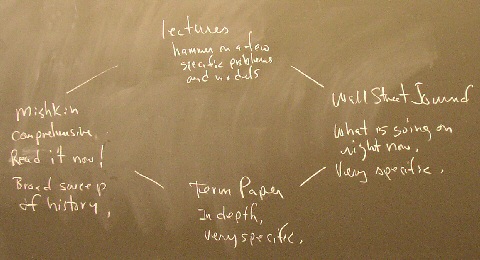 lectures
hammer on a few
specific problems
and models
Mishkin
comprehensive.
Read it now!
Broad sweep
of history.
Wall Street Journal
What is going on
right now.
Very specific.
Term Paper
In depth,
very specific.